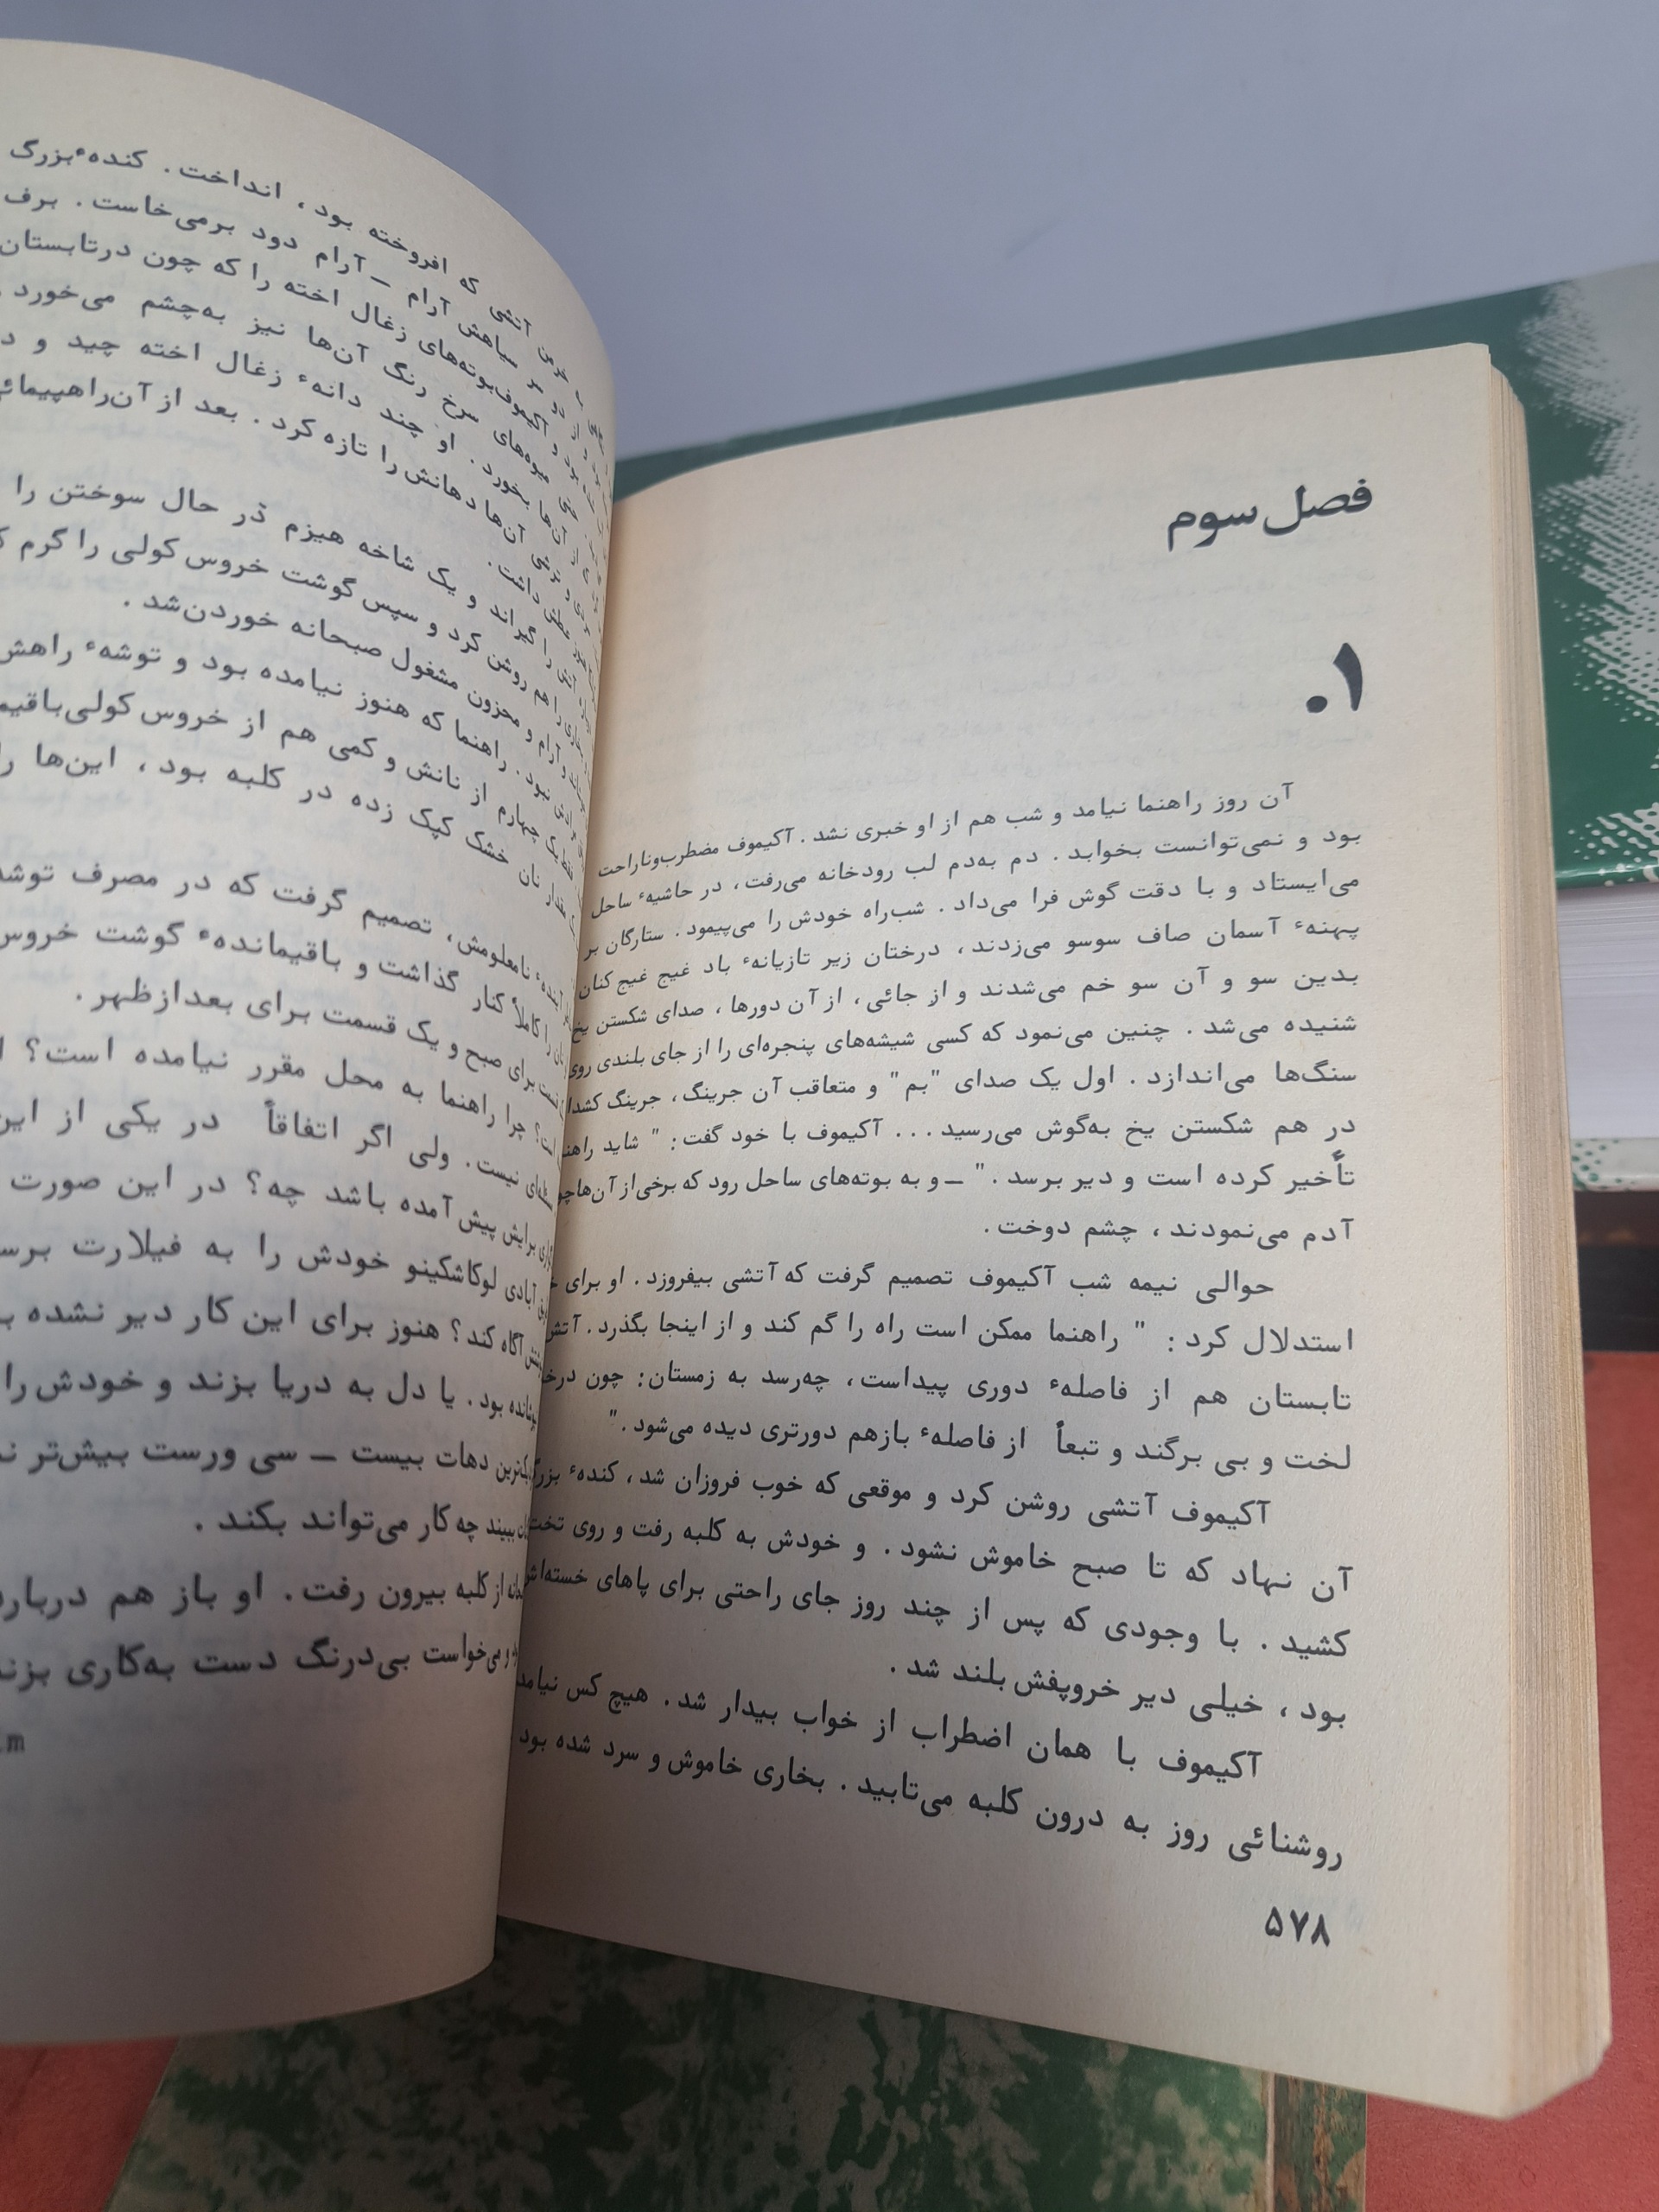 فصل سوم
۱.
آن روز راهنما نیامد و شب هم از او خبری نشد. آکیموف مضطرب‌وناراحت
بود و نمی‌توانست بخوابد. دم به‌دم لب رودخانه می‌رفت، در حاشیهٔ ساحل
می‌ایستاد و با دقت گوش فرا می‌داد. شب‌راه خودش را می‌پیمود. ستارگان بر
پهنهٔ آسمان صاف سوسو می‌زدند، درختان زیر تازیانهٔ باد غیج غیج کنان
بدین سو و آن سو خم می‌شدند و از جائی، از آن دورها، صدای شکستن یخ
شنیده می‌شد. چنین می‌نمود که کسی شیشه‌های پنجره‌ای را از جای بلندی روی
سنگ‌ها می‌اندازد. اول یک صدای "بم" و متعاقب آن جرینگ، جرینگ
در هم شکستن یخ به‌گوش می‌رسید... آکیموف با خود گفت: " شاید
تأخیر کرده است و دیر برسد." ـ و به بوته‌های ساحل رود که برخی‌از آن‌ها
آدم می‌نمودند، چشم دوخت.
حوالی نیمه شب آکیموف تصمیم گرفت که آتشی بیفروزد. او برای
استدلال کرد: " راهنما ممکن است راه را گم کند و از اینجا بگذرد.
تابستان هم از فاصلهٔ دوری پیداست، چه‌رسد به زمستان: چون
لخت و بی برگند و تبعاً از فاصلهٔ بازهم دورتری دیده می‌شود."
آکیموف آتشی روشن کرد و موقعی که خوب فروزان شد، کندهٔ
آن نهاد که تا صبح خاموش نشود. و خودش به کلبه رفت و روی
کشید. با وجودی که پس از چند روز جای راحتی برای پاهای
بود، خیلی دیر خروپفش بلند شد.
آکیموف با همان اضطراب از خواب بیدار شد. هیچ کس
روشنائی روز به درون کلبه می‌تابید. بخاری خاموش و سرد شده بود
۵۷۸
آتشی که افروخته بود، انداخت. کندهٔ بزرگ
سیاهش آرام ـ آرام دود برمی‌خاست. برف
آکیموف‌بوته‌های زغال اخته را که چون درتابستان
میوه‌های سرخ رنگ آن‌ها نیز به‌چشم می‌خورد
آن‌ها بخورد. او چند دانهٔ زغال اخته چید و
آن‌ها دهانش را تازه کرد. بعد از آن‌راهپیمائی
داشت.
را گیراند و یک شاخه هیزم در حال سوختن را
را هم روشن کرد و سپس گوشت خروس کولی را گرم
آرام و محزون مشغول صبحانه خوردن‌شد.
نبود. راهنما که هنوز نیامده بود و توشهٔ راهش
چهارم از نانش و کمی هم از خروس کولی‌
مقدار نان خشک کپک زده در کلبه بود، این‌ها
نامعلومش، تصمیم گرفت که در مصرف
را کاملاً کنار گذاشت و باقیماندهٔ گوشت خروس
برای صبح و یک قسمت برای بعدازظهر.
چرا راهنما به محل مقرر نیامده است؟
نیست. ولی اگر اتفاقاً در یکی از
برایش پیش آمده باشد چه؟ در این صورت
آبادی لوکاشکینو خودش را به فیلارت
آگاه کند؟ هنوز برای این کار دیر نشده
بود. یا دل به دریا بزند و خودش را
دهات بیست ـ سی ورست بیش‌تر
ببیند چه کار می‌تواند بکند.
از کلبه بیرون رفت. او باز هم
و می‌خواست بی‌درنگ دست به‌کاری